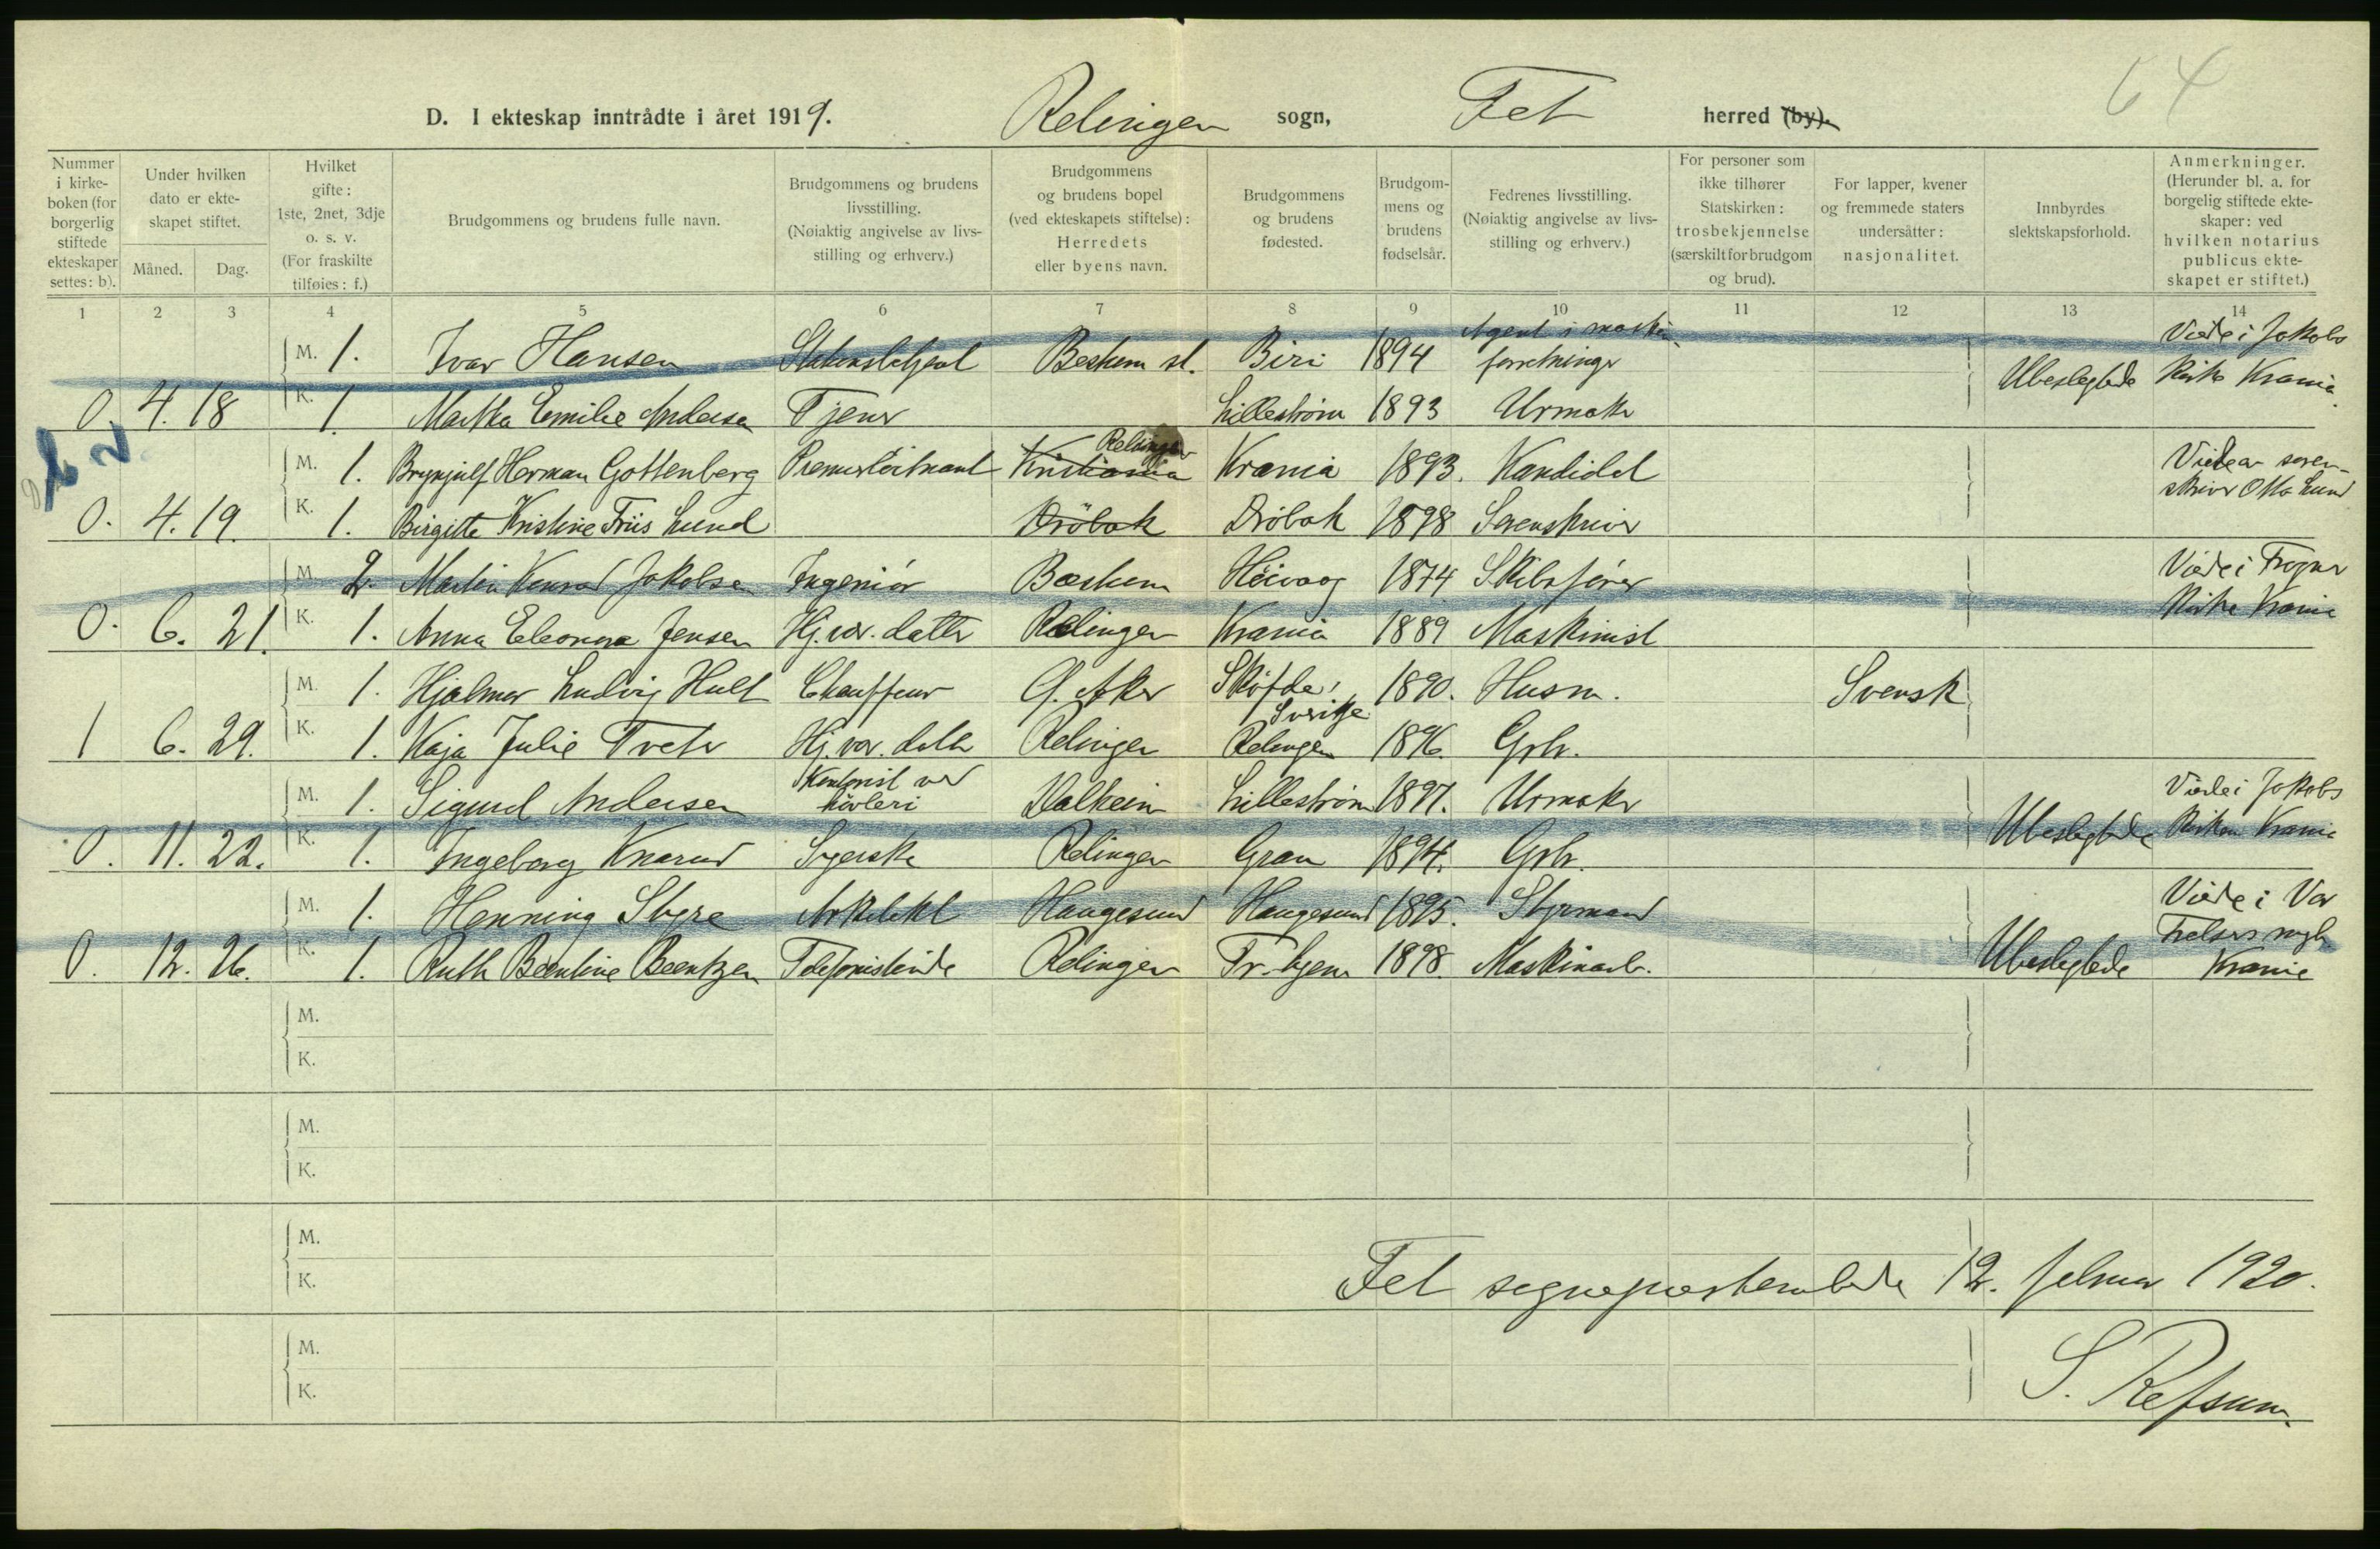 64
D. I ekteskap inntrådte i året 1919. Relingen sogn, Fet herred (by).
Nummer i kirkeboken (for borgerlig stiftede ekteskaper settes: b).
Under hvilken dato er ekteskapet stiftet.
Måned. Dag.
Hvilket gifte: 1ste, 2net, 3dje o. s. v. (For fraskilte tilføies: f.)
Brudgommens og brudens fulle navn.
Brudgommens og brudens livsstilling. (Nøiaktig angivelse av livsstilling og erhverv.)
Brudgommens og brudens bopel (ved ekteskapets stiftelse): Herredets eller byens navn.
Brudgommens og brudens fødested.
Brudgommens og brudens fødselsår.
Fedrenes livsstilling. (Nøiaktig angivelse av livsstilling og erhverv.)
For personer som ikke tilhører Statskirken: trosbekjennelse (særskilt for brudgom og brud).
For lapper, kvener og fremmede staters undersåtter: nasjonalitet.
Innbyrdes slektskapsforhold.
Anmerkninger. (Herunder bl. a. for borgelig stiftede ekteskaper: ved hvilken notarius publicus ekteskapet er stiftet.)
1 2 3 4 5 6 7 8 9 10 11 12 13 14
M. 1. Ivar Hansen Stationsbetjent st. Biri 1894 Agent i maskin forretninger Ubeslegtede Viede i Jakobs kirke Krania
0. 4. 18 K. 1. Martha Emilie Andersen Tjener Lillestrøm 1893 Urmaker
M. 1. Brynjulf Herman Gottenberg Premierløitnant Kristiania Relingen Krania 1893. Kandidat Viede av sorenskriver Otto Lund
0. 4. 19. K. 1. Birgitte Kristine Friis Lund Drøbak Drøbak 1898 Sorenskriver
M. 2. Martin Konrad Jakobsen Ingeniør Høivaag 1874 Skibsfører Viede i Frogner Kirke Krania
0. 6. 21. K. 1. Anna Eleonora Jensen Hj.vær. datter Relingen Krania 1889 Maskinist
M. 1. Hjalmar Ludvig Hult Chauffeur Ø. Aker Sköfde, Sverige 1890. Husm. Svensk
1 6. 29. K. 1. Kaja Julie Tveter Hj.vær. datter Relingen Relingen 1896. Grbr.
M. 1. Sigurd Andersen Kontorist ved høvleri Dalheim Lillestrøm 1897. Urmaker Ubeslegtede Viede i Jakobs Kirken Krania
0. 11. 22. K. 1. Ingeborg Knarud Syerske Relingen Gran 1894. Grbr.
M. 1. Henning Styre Arkitekt Haugesund Haugesund 1895. Styrmand Ubeslegtede Viede i Vor Frelsers mgh. Krania
0. 12. 26. K. 1. Ruth Berntine Berntzen Telefonistinde Relingen Tr.hjem 1898. Maskinarb.
M.
K.
M.
K.
M.
K.
Fet sogneprestembede 12. februar 1920.
M.
K.
S. Refsum.